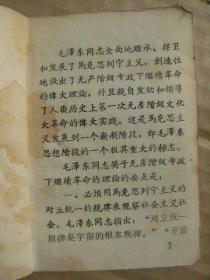 毛澤东同志全面地继承、捍卫
和发展了馬克思列宁主义，創造性
地提出了无产阶級专政下继續革命
的偉大理論，并且親自发动和領导
了人类历史上第一次无产阶級文化
大革命的偉大实践。这是馬克思主
义发展到一个嶄新阶段，即毛澤东
思想阶段的一个极其重大的标志。
毛澤东同志关于无产阶級专政
下继續革命的理論的要点是：
一、必須用馬克思列宁主义的
对立統一的規律来观察社会主义社
会。毛澤东同志指出：“对立統一
規律是宇宙的根本規律。”“矛盾
1